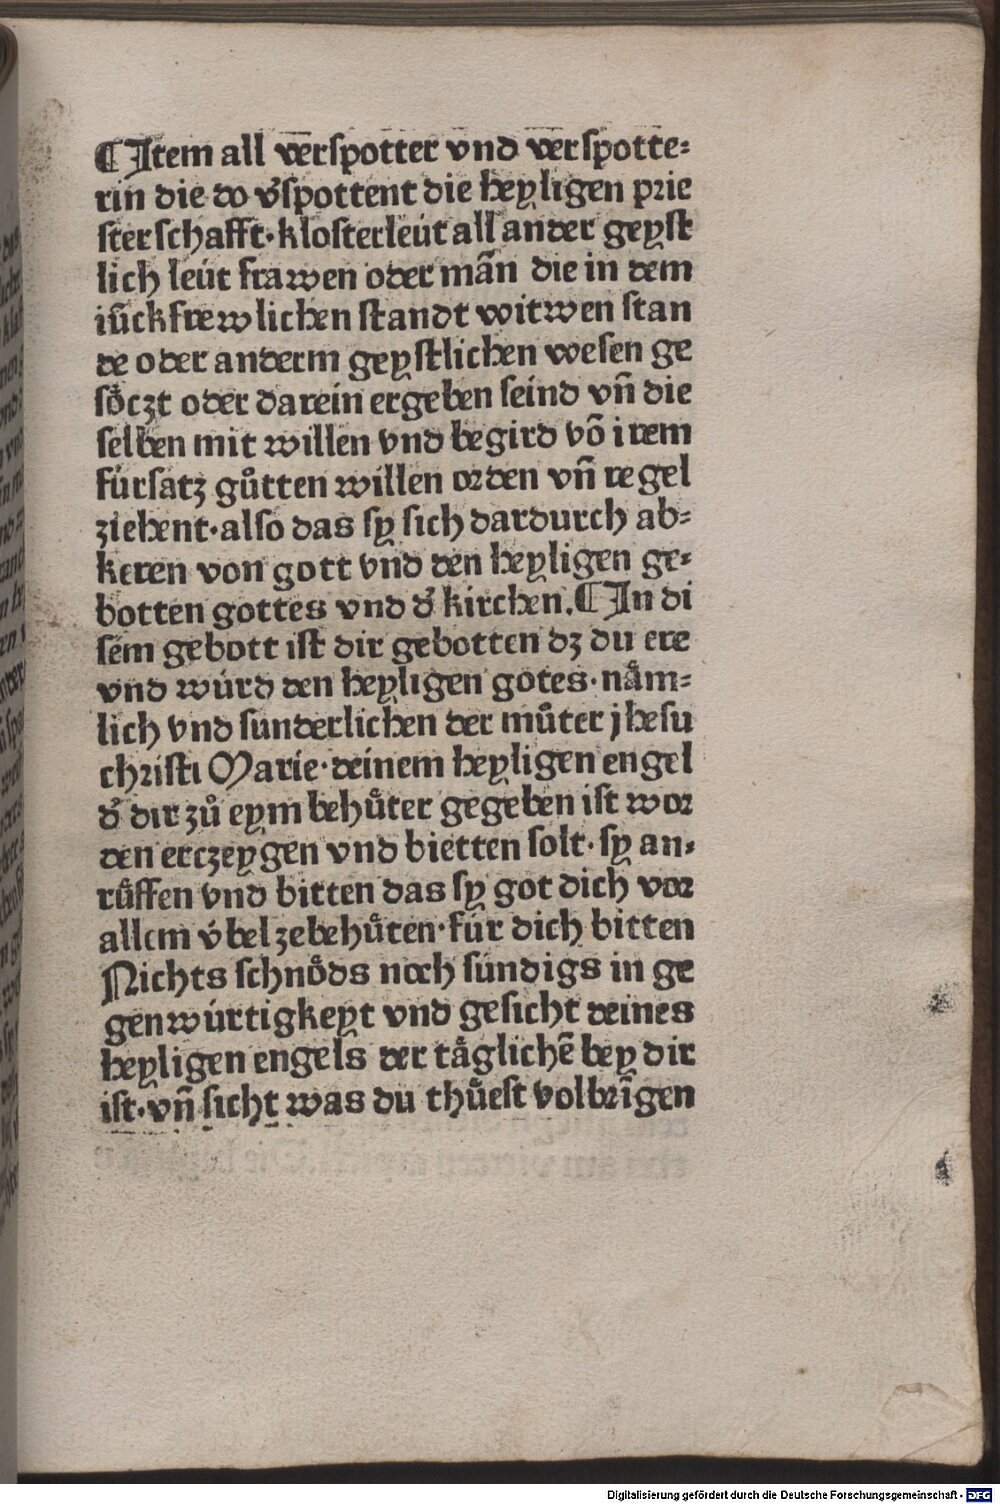 ¶ Item all verspotter vnd verspotte=
rin die do v̓spottent die heyligen prie
sterschafft·klosterleút all ander geyst
lich leút frawen oder mān die in dem
iūckfrewlichen standt witwen stan
de oder anderm geystlichen wesen ge
sŏ́czt oder darein ergeben seind vn̄ die
selben mit willen vnd begird vō irem
fúrsatz gůtten willen orden vn̄ regel
ziehent·also das sy sich dardurch ab=
keren von gott vnd den heyligen ge=
botten gottes vnd d̓ kirchen.¶ In di
sem gebott ist dir gebotten dz du ere
vnd wúrd den heyligen gotes·nåm=
lich vnd sunderlichen der můter jhesu
christi Marie·deinem heyligen engel
d̓ dir zů eym behůter gegeben ist wor
den erczeygen vnd bietten solt·sy an=
růffen vnd bitten das sy got dich vor
allem v́bel zebehůten·fúr dich bitten
Nichts schnöds noch súndigs in ge
genwúrtigkeyt vnd gesicht deines
heyligen engels der tåglichē bey dir
ist·vn̄ sicht was du thůest volbrīgen
Digitalisierung gefördert durch die Deutsche Forschungsgemeinschaft - DFG